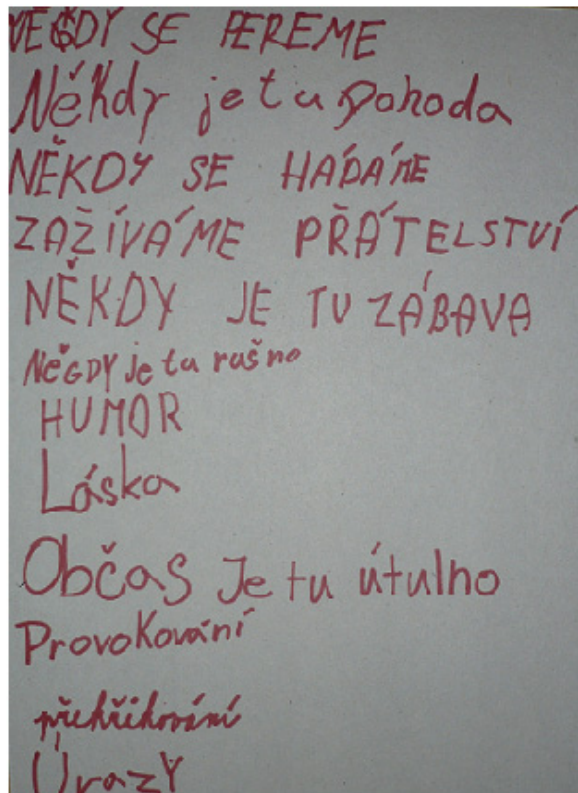 NĚGDY SE PEREME
Někdy je tu Pohoda
NĚKDY SE HÁDÁME
ZAŽÍVÁME PŘÁTELSTVÍ
NĚKDY JE TU ZÁBAVA
NěGDY je tu rušno
HUMOR
Láska
Občas Je tu útulno
Provokování
překřikování
Úrazy